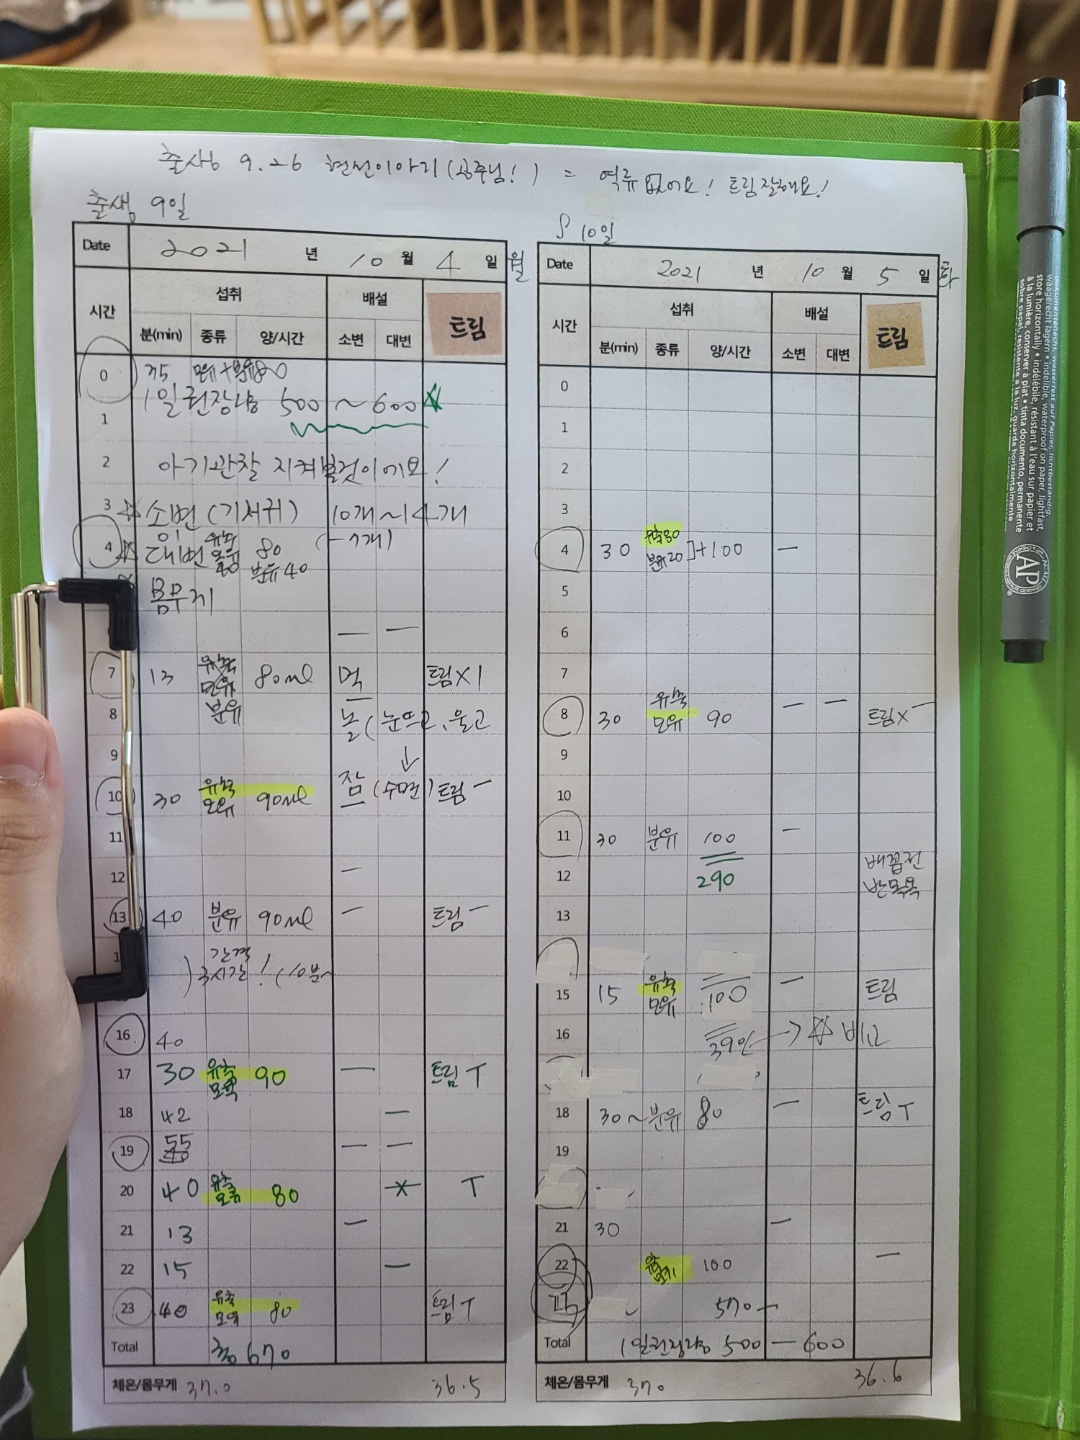 출생 9.26 현선이아리(공주님!) = 역류없어요! 트림잘해요!
출생 9일
10일
Date 2021 년 10 월 4 일 월
시간 섭취 배설 트림
분(min) 종류 양/시간 소변 대변
0 35 모유+분유80
1일 권장량 500~600
1
2 아기관찰 지켜볼것이에요!
3 ☆ 소변(기저귀) 10개~14개
4 ☆ 대변 유축 모유 80 (-7개)
40 분유40
몸무게
— —
7 13 유축 모유 80ml 먹 트림X1
8 분유 놀(눈뜨고, 울고
9 ↓
10 30 유축 모유 90ml 잠(수면) 트림 —
11
12 —
13 40 분유 90ml — 트림 —
간격 3시간! (10분~
16 40
17 30 유축 모유 90 — 트림 T
18 42 —
19 55 — —
20 40 유축 모유 80 T
21 13 —
22 15 —
23 40 유축 모유 80 트림 T
Total 총 670
체온/몸무게 37.0 36.5
Date 2021 년 10 월 5 일 화
시간 섭취 배설 트림
분(min) 종류 양/시간 소변 대변
0
1
2
3
4 30 유축80 분유20 ]+100 —
5
6
7
8 30 유축 모유 90 — — 트림X —
9
10
11 30 분유 100 —
12 290 배꼽전
반목욕
13
15 15 유축 모유 100 — 트림
16 390 → ☆ 비고
18 30~분유 80 — 트림 T
19
21 30 —
22 유축 모유 100 —
570 —
Total 1일권장량 500 — 600
체온/몸무게 37.0 36.6
waagerecht lagern • indelible, waterproof on paper, lightfast,
store horizontally • indélébile, résistant à l'eau sur papier et
à la lumière, conserver à plat • tinta documento, permanente
AP